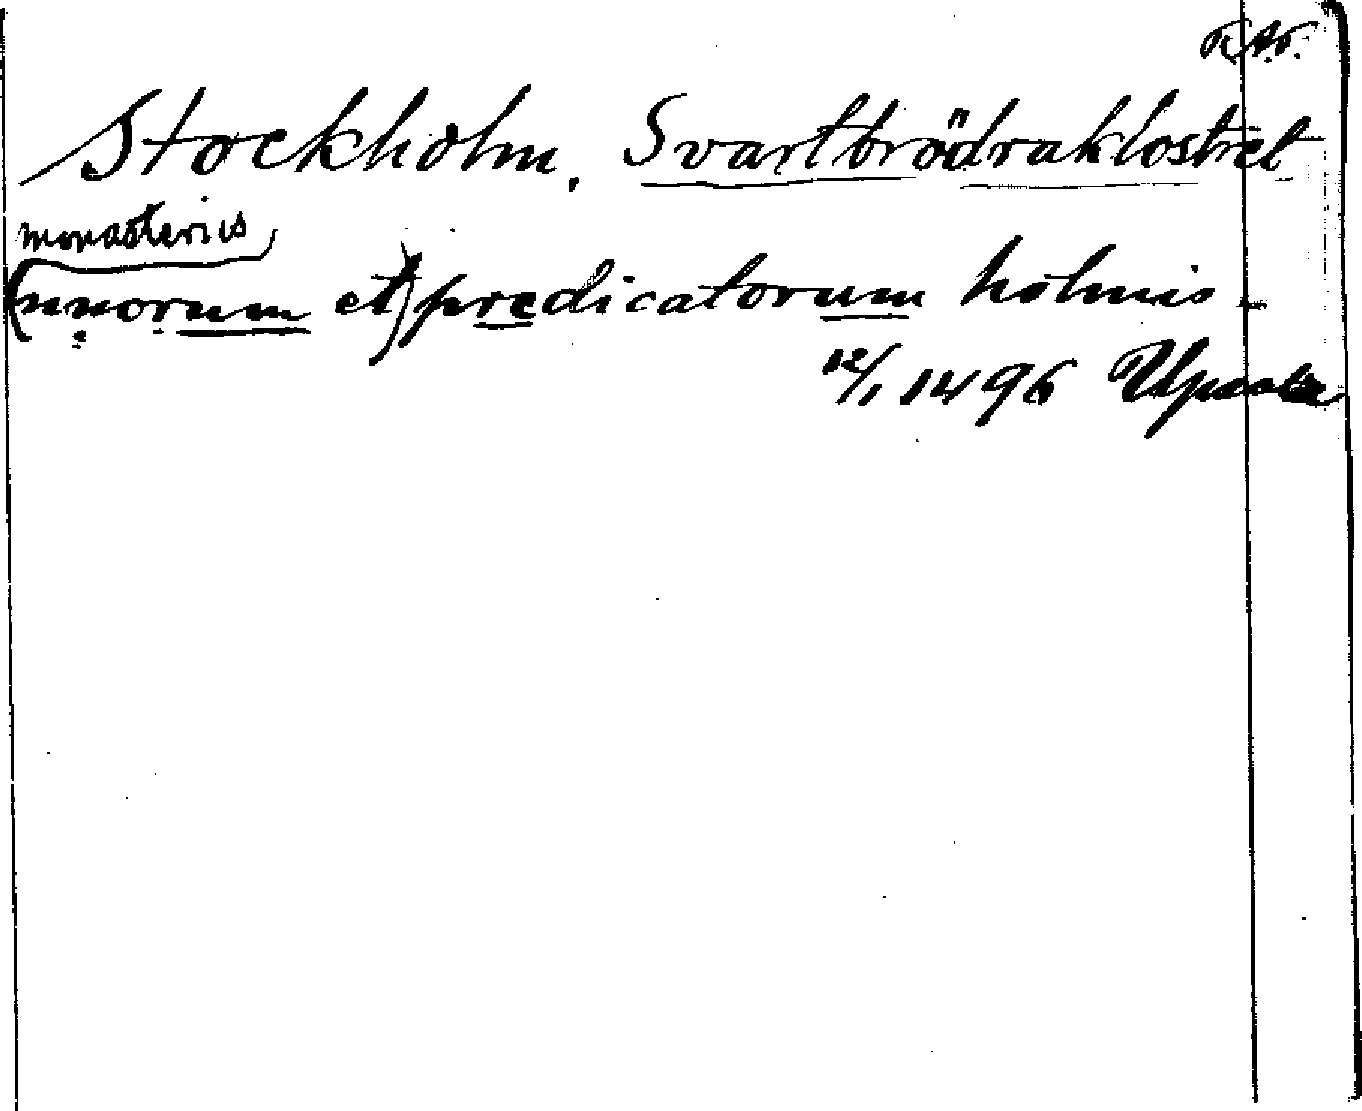 RAp.
Stockholm, Svartbrödraklostret
monasteriis
(mnorum et) predicatorum holmis -
12/1 1496 Upsala